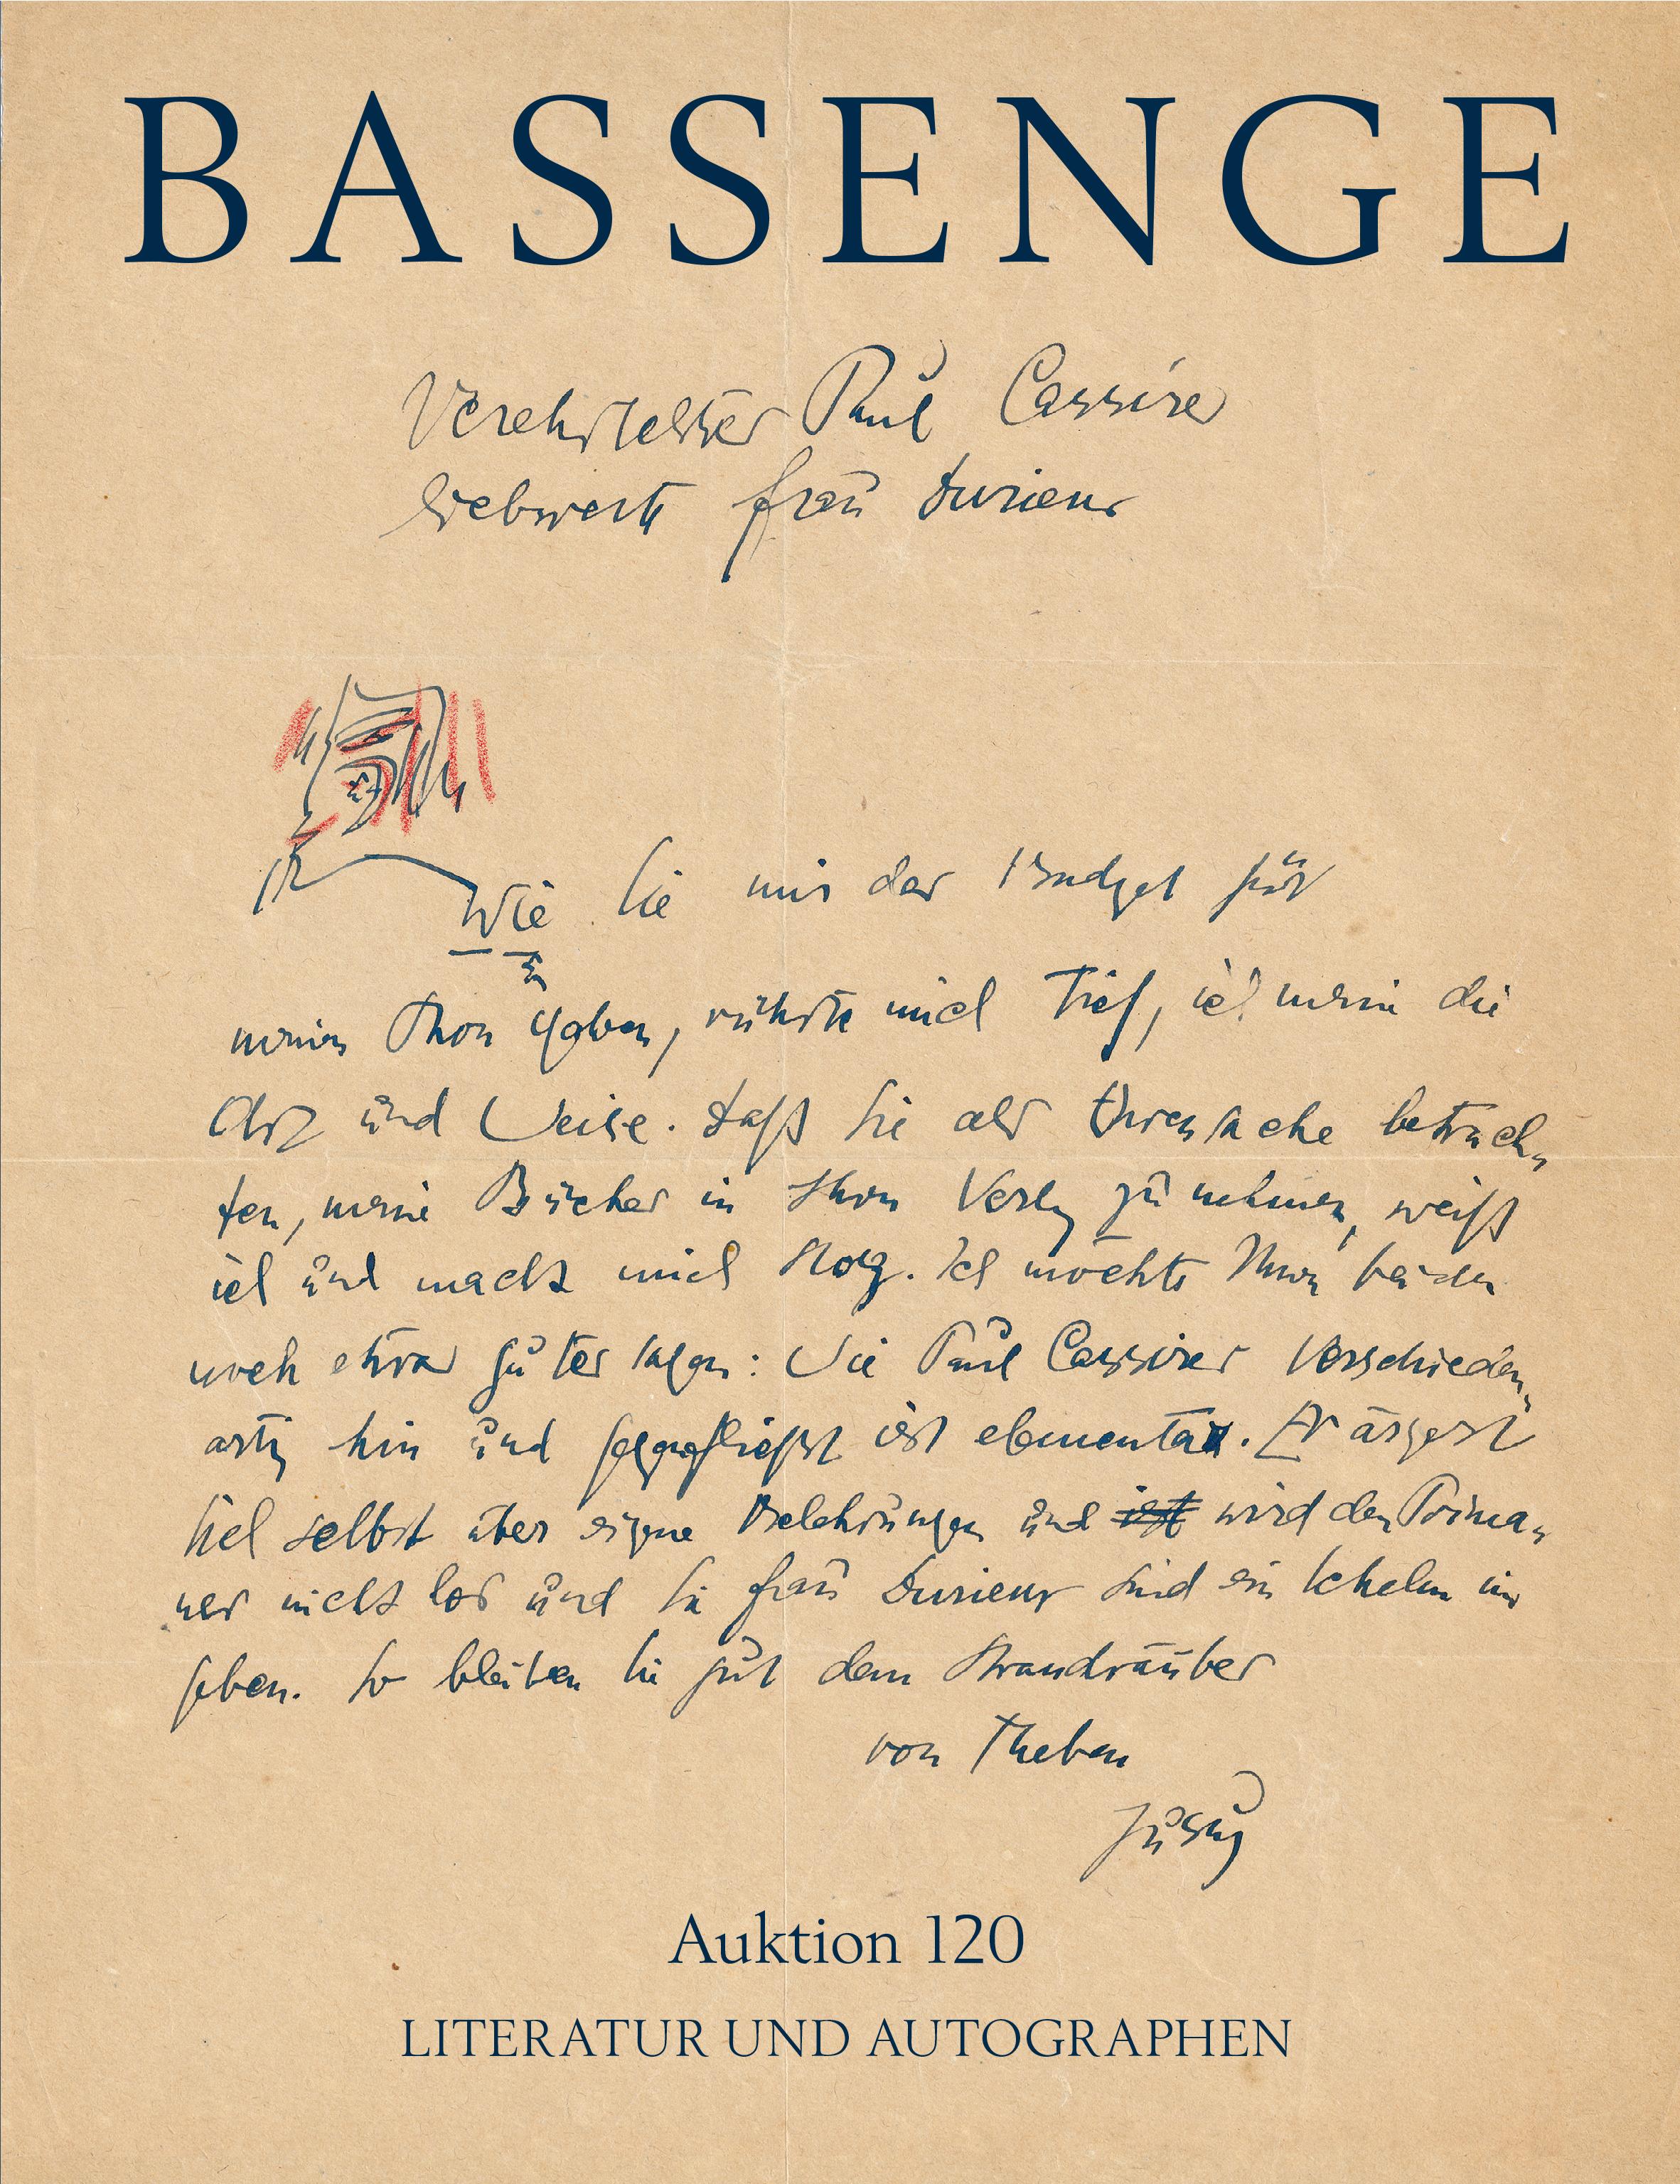 BASSENGE
Verehrtester Paul Cassirer
liebwerte Frau Durieux
Wie Sie mir das Budget für
meinen Thron gaben, rührte mich tief, ich meine die
Art und Weise. Daß Sie als Ehrensache betrach-
ten, meine Bücher in Ihren Verlag zu nehmen, weiß
ich und macht mich stolz. Ich möchte Ihnen beiden
noch etwas gutes sagen: Wie Paul Cassirer verschieden-
artig hin und ist elementar. Er ärgert
sich selbst über eigene Belehrungen und ist wird den Prima-
ner nicht los und Sie Frau Durieux sind ein Schelm im
geben. So bleiben Sie gut dem Strandräuber
von Theben
Jussuf
Auktion 120
LITERATUR UND AUTOGRAPHEN